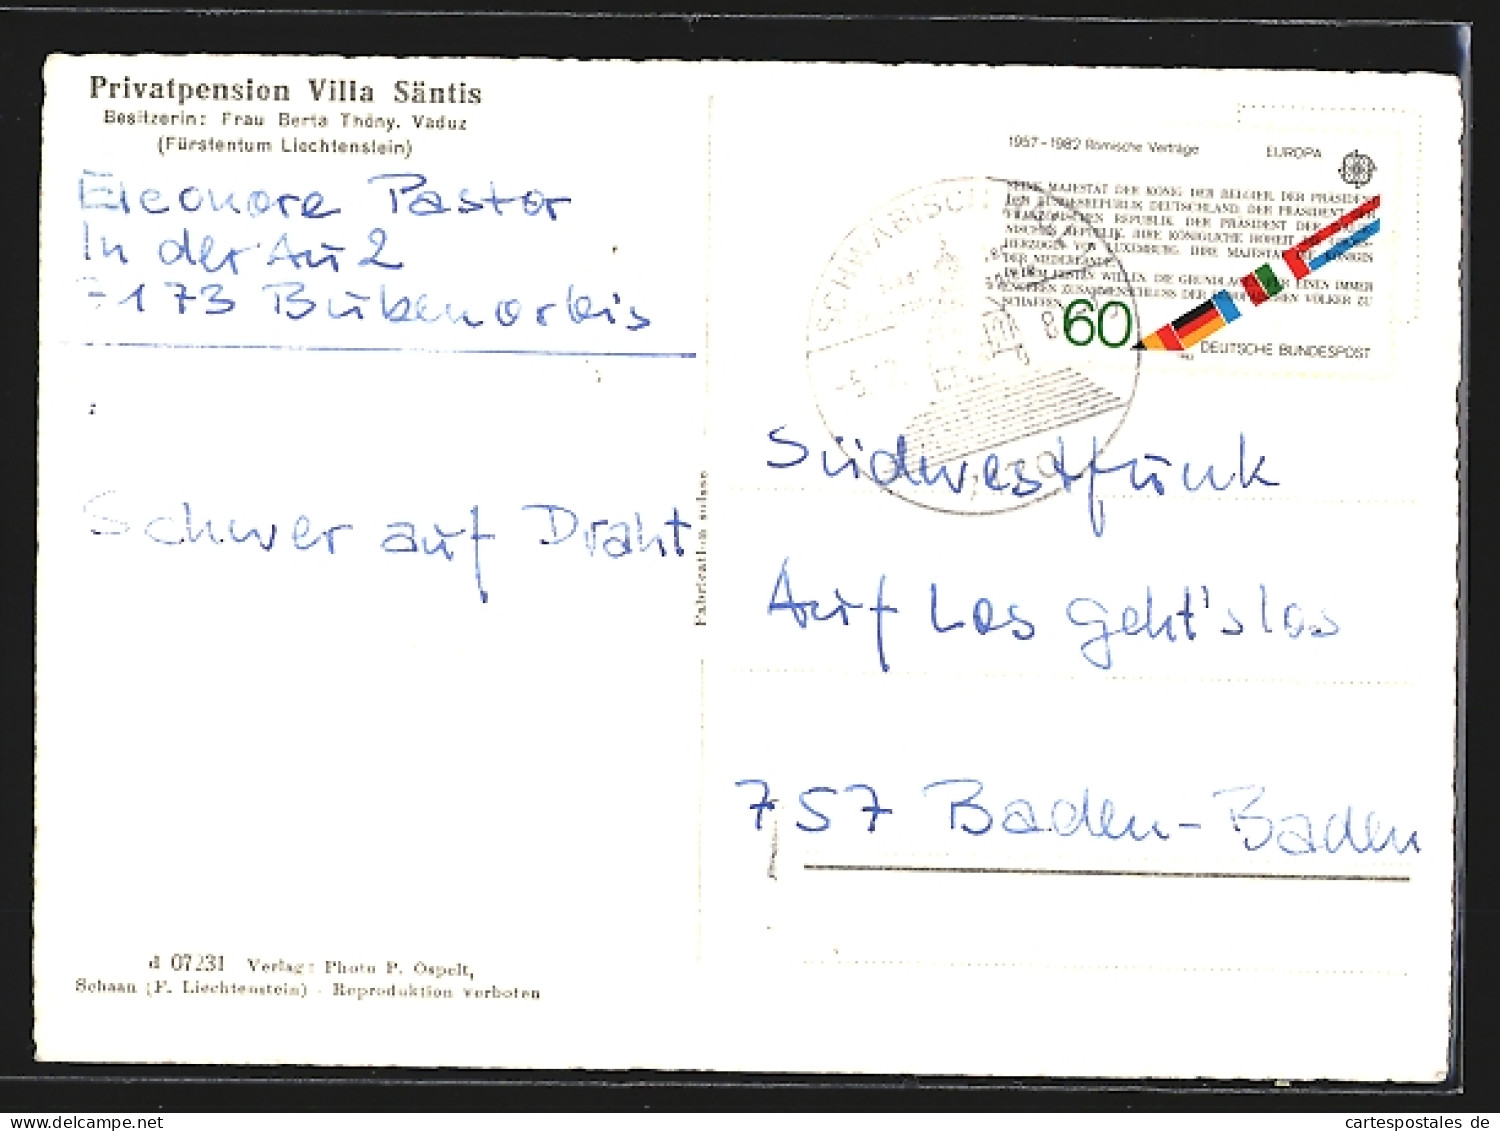 Privatpension Villa Säntis
Besitzerin: Frau Berta Thöny, Vaduz
(Fürstentum Liechtenstein)
Eleonore Pastor
In der Au 2
7173
Schwer auf Draht
d 07231 Verlag: Photo P. Ospelt,
Schaan (F. Liechtenstein) - Reproduktion verboten
Fabrication suisse
1957-1982 Römische Verträge
EUROPA
SEINE MAJESTÄT DER KÖNIG DER BELGIER, DER PRÄSIDENT
DER BUNDESREPUBLIK DEUTSCHLAND, DER PRÄSIDENT DER
FRANZÖSISCHEN REPUBLIK, DER PRÄSIDENT DER
NISCHEN REPUBLIK, IHRE KÖNIGLICHE HOHEIT DIE
HERZOGIN VON LUXEMBURG, IHRE MAJESTÄT DIE KÖNIGIN
DER NIEDERLANDE,
IN DEM FESTEN WILLEN, DIE GRUNDLAGEN FÜR EINEN IMMER
ENGEREN ZUSAMMENSCHLUSS DER EUROPÄISCHEN VÖLKER ZU
SCHAFFEN
60
DEUTSCHE BUNDESPOST
SCHWÄBISCH
Südwestfunk
Auf Los geht's los
757 Baden-Baden
cartespostales de